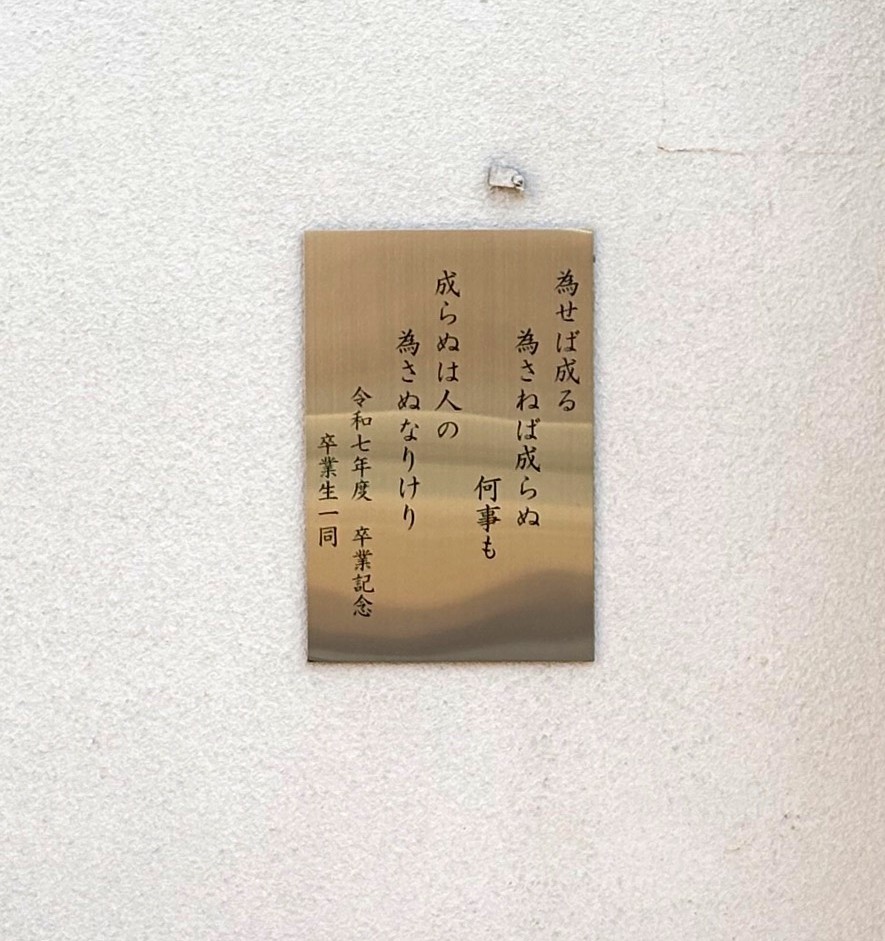 為せば成る
為さねば成らぬ
何事も
成らぬは人の
為さぬなりけり
令和七年度 卒業記念
卒業生一同